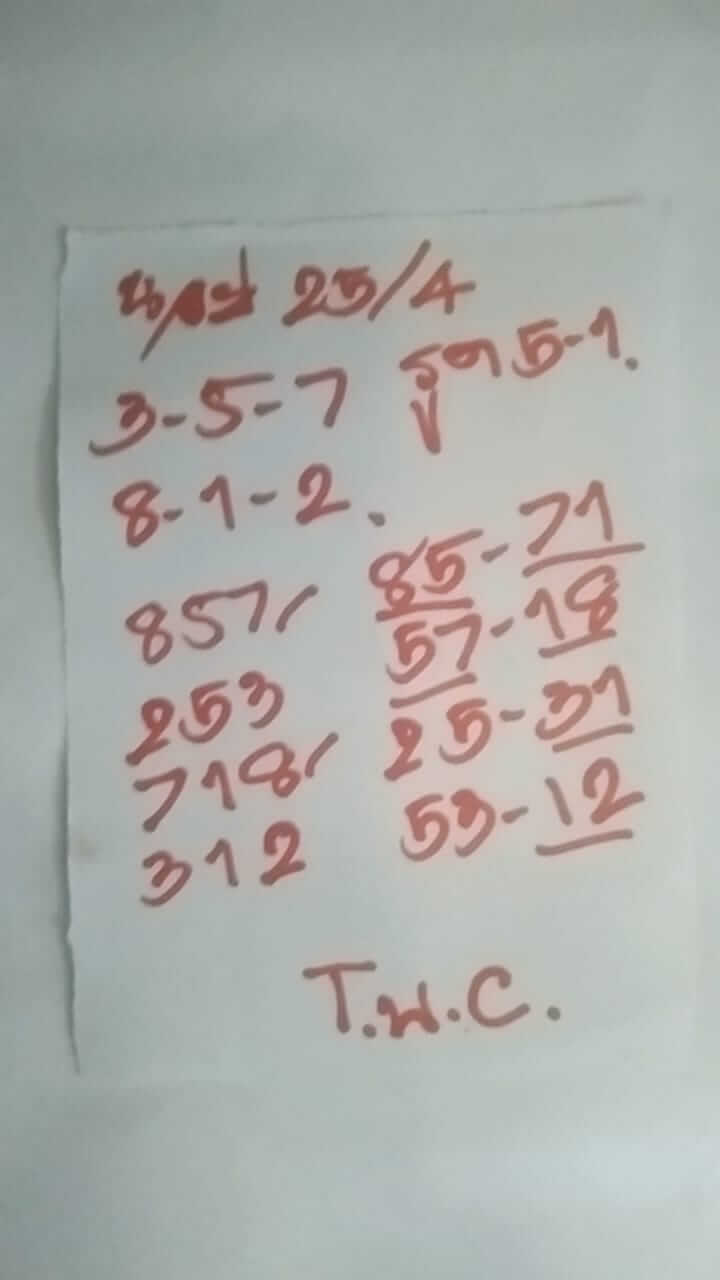 25/4
3-5-7 รูด 5-1.
8-1-2.
857/ 85-71
253 57-18
718/ 25-31
312 53-12
T.N.C.